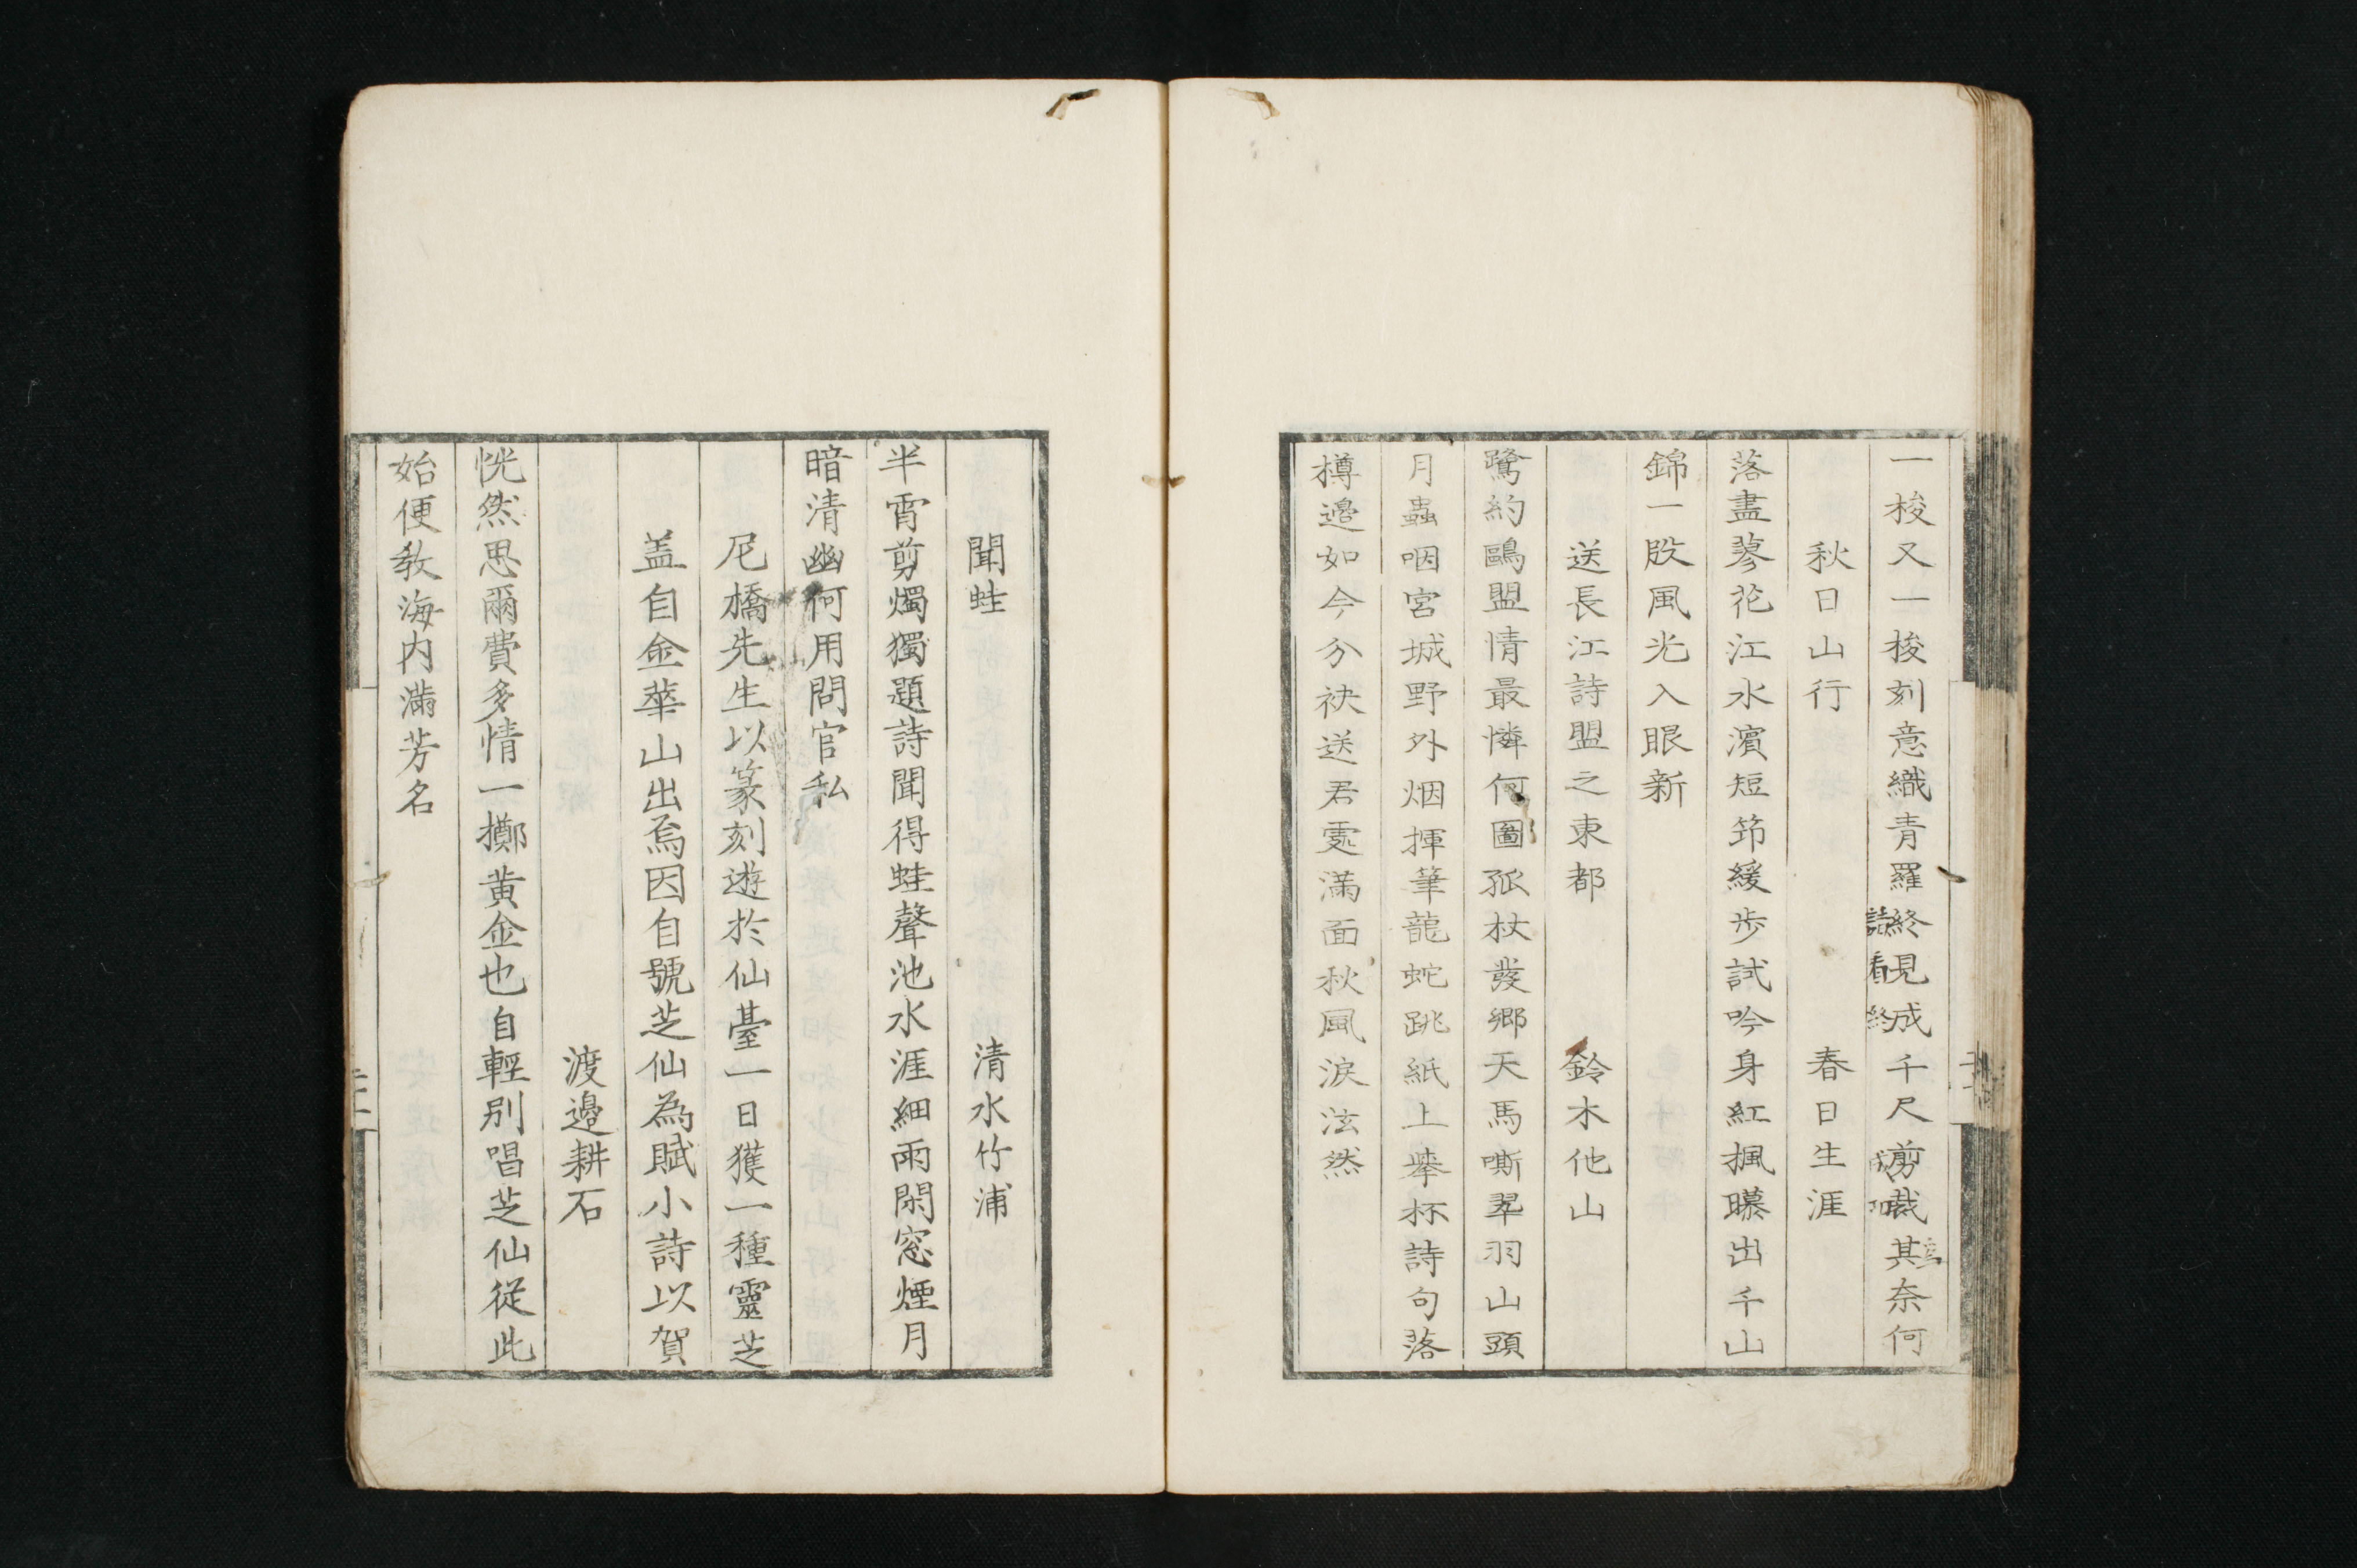 一梭又一梭刻意織青羅終見成千尺剪裁其奈何
請看終
秋日山行　春日生涯
落盡蓼花江水濱短笻緩步試吟身紅楓曝出千山
錦一段風光入眼新
送長江詩盟之東都　鈴木他山
鷺約鷗盟情最憐何圖孤杖發鄉天馬嘶翠羽山頭
月蟲咽宮城野外烟揮筆龍蛇跳紙上擧杯詩句落
樽邊如今分袂送君處滿面秋風淚泫然
聞蛙　清水竹浦
半宵剪燭獨題詩聞得蛙聲池水涯細雨閑窓煙月
暗清幽何用問官私
尼橋先生以篆刻遊於仙臺一日獲一種靈芝
盖自金華山出焉因自號芝仙為賦小詩以賀
渡邉耕石
恍然思爾費多情一擲黄金也自輕別唱芝仙從此
始便教海内滿芳名